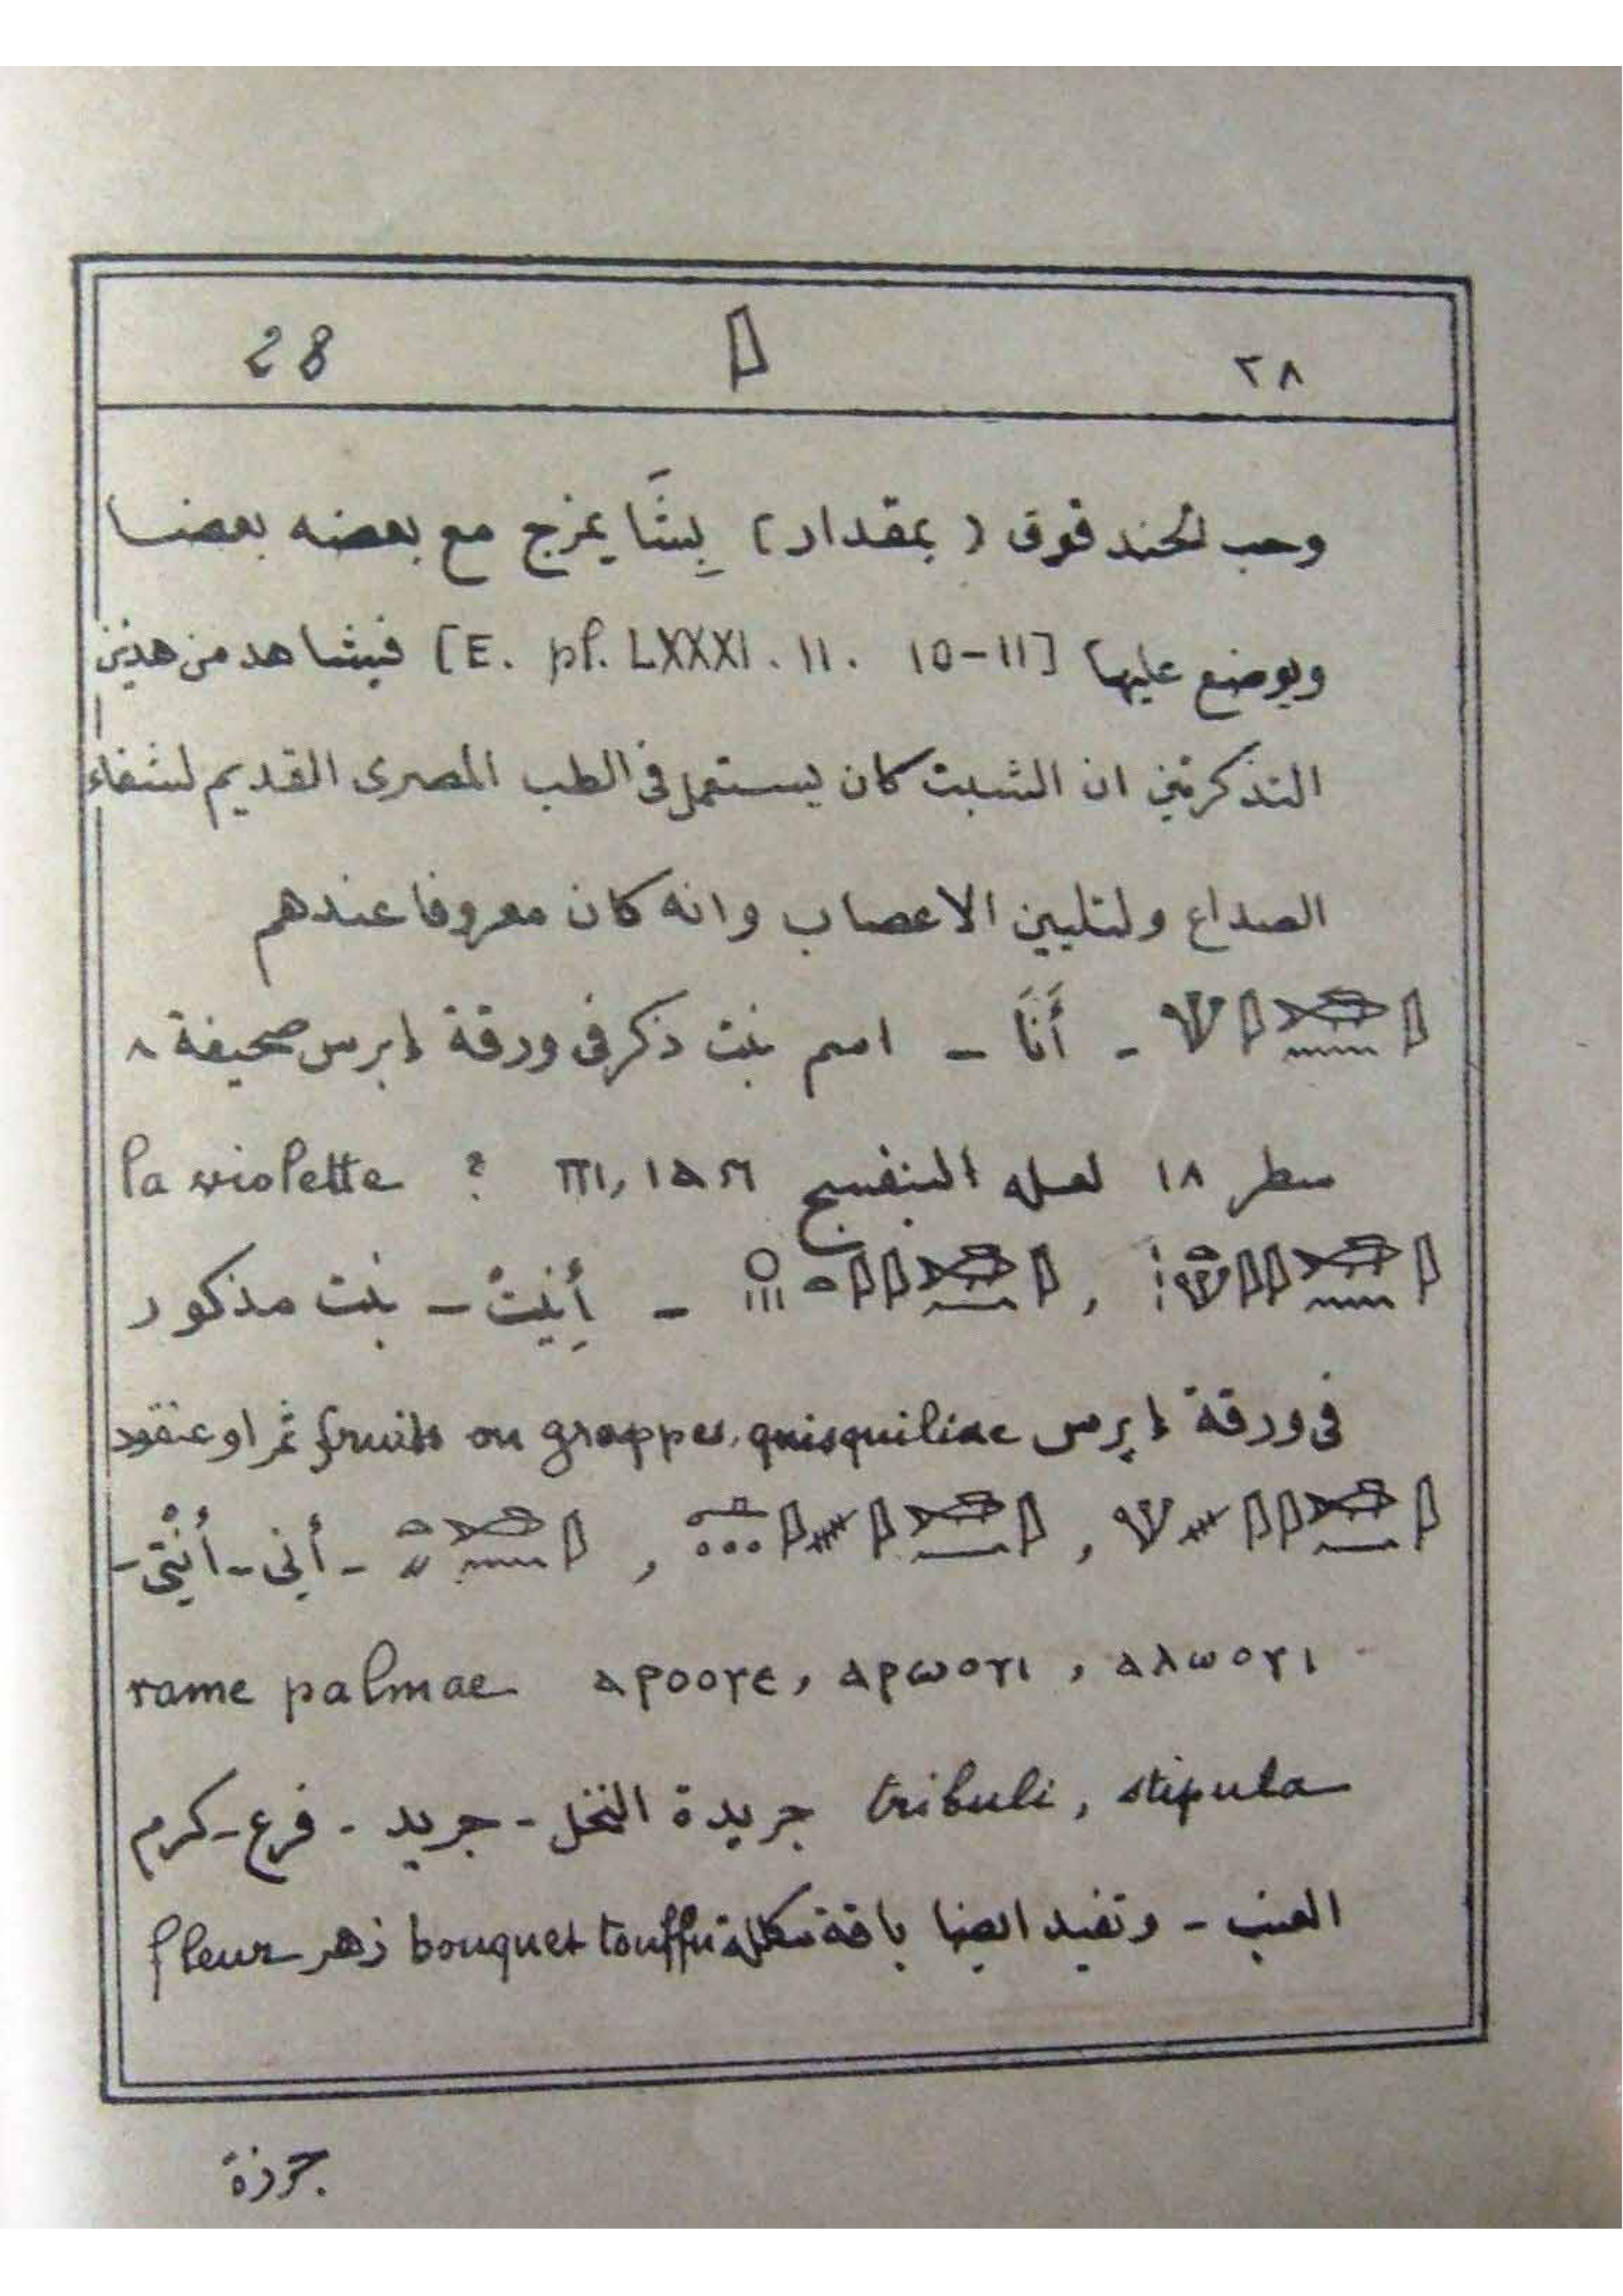 28 ٢٨
وحب الحندقوق (بمقدار) بِشَّا يمزج مع بعضه بعضا
ويوضع عليها [E. pl. LXXXI. 11. 10-11] فيشاهد من هذين
التذكرتين ان الشبت كان يستعمل فى الطب المصرى القديم لشفاء
الصداع ولتليين الاعصاب وانه كان معروفا عندهم
- أَنَا - اسم نبت ذكر فى ورقة إبرس صحيفة ٨
سطر ١٨ لعله البنفسج ? la violette
, - أَنِيتْ - نبت مذكور
فى ورقة إبرس fruits ou grappes, quisquiliae ثمر او عنقود
, , - أنى - أُنْتِى -
ⲁⲗⲱⲟⲩⲓ , ⲁⲣⲱⲟⲩⲓ , ⲁⲣⲟⲟⲩⲉ rame palmae
tribuli, stipula جريدة النخل - جريد - فرع - كرم
العنب - وتفيد ايضا باقة bouquet touffu زهر fleur
جرزة